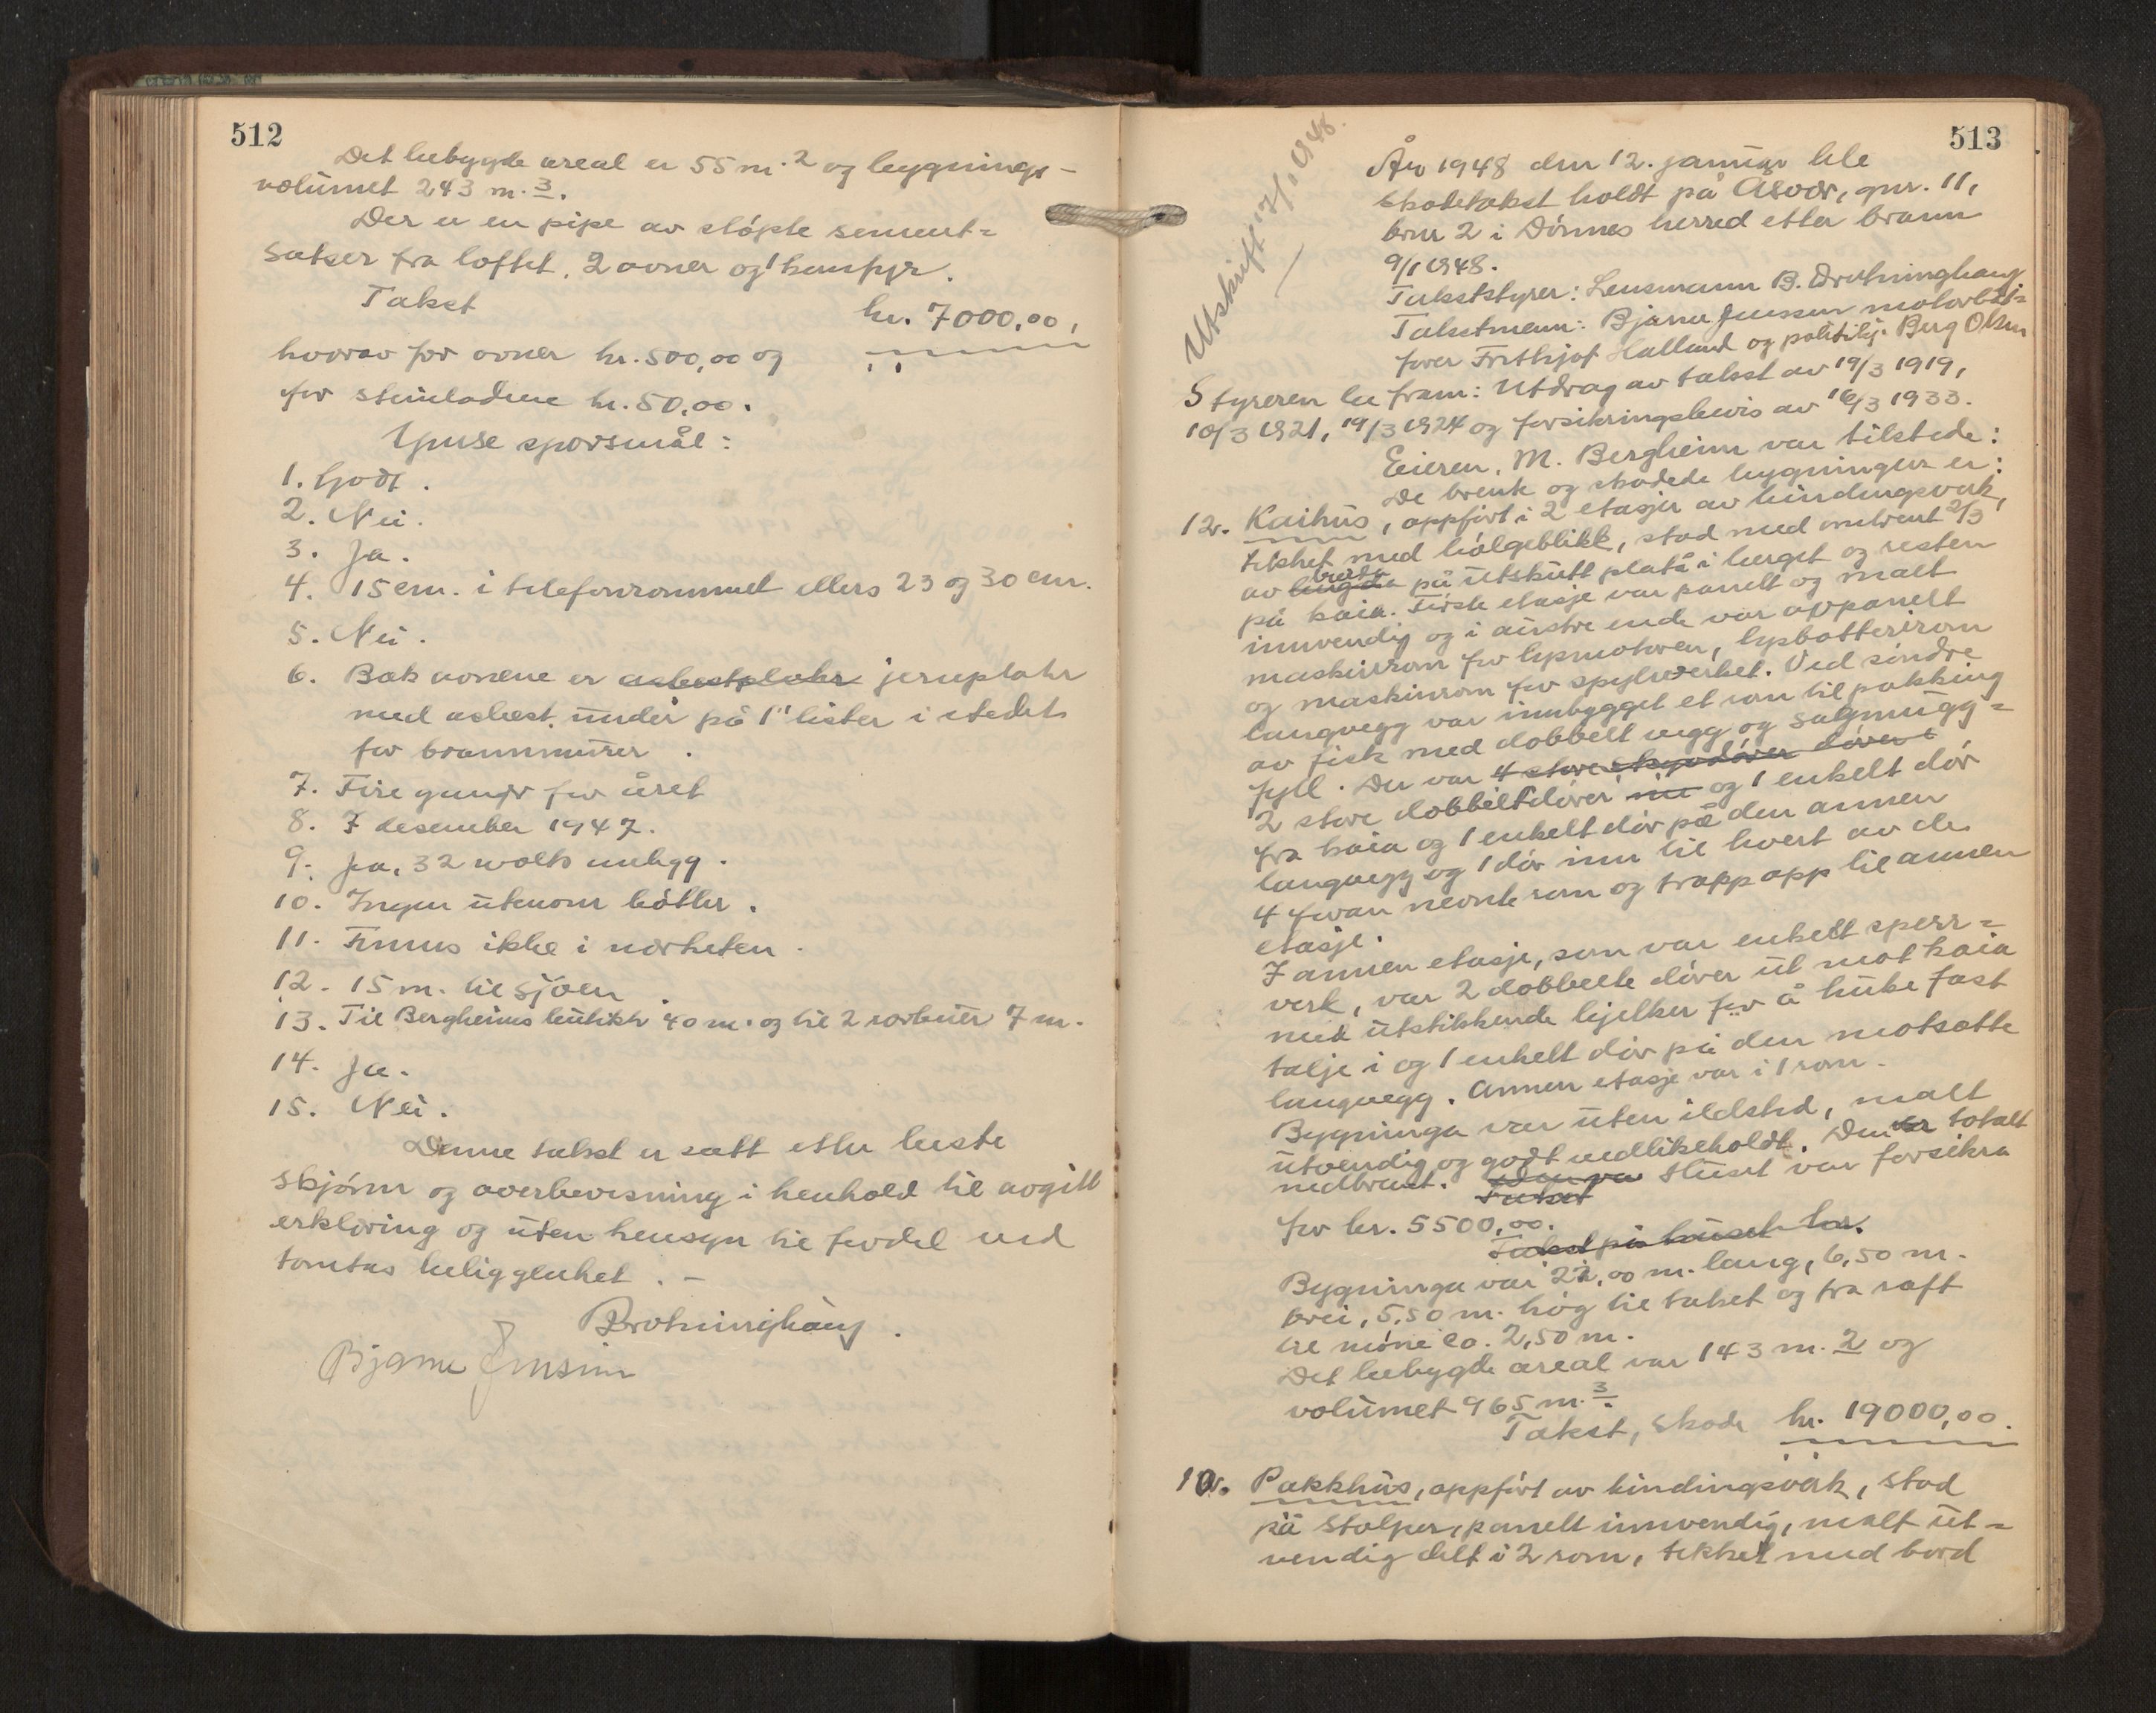 512
Det bebygde areal er 55 m.2 og bygnings-
volumet 243 m.3.
Der er en pipe av støpte sement=
satser fra loftet. 2 ovner og 1 komfyr.
Takst kr. 7000,00,
hvorav for ovner kr. 500,00 og
for steinladene kr. 50,00.
Ymse spørsmål:
1. Godt.
2. Nei.
3. Ja.
4. 15 cm. i telefonrommet ellers 23 og 30 cm.
5. Nei.
6. Bak ovnene er asbestplater jernplater
med asbest under på 1" lister i stedet
for brannmurer.
7. Fire ganger for året
8. 7 desember 1947.
9. Ja, 32 volts anlegg.
10. Ingen utenom bøtter.
11. Finnes ikke i nærheten.
12. 15 m. til sjøen.
13. Til Bergheims butikk 40 m. og til 2 rorbuer 7 m.
14. Ja.
15. Nei.
Denne takst er satt etter beste
skjønn og overbevisning i henhold til avgitt
erklæring og uten hensyn til fordel ved
tomtas beliggenhet. -
Drotninghaug.
Bjarne Jensen
513
Utskrift 17/1 1948.
År 1948 den 12. januar ble
skadetakst holdt på Åsvær, gnr. 11,
bnr 2 i Dønnes herred etter brann
9/1 1948.
Takststyrer: Lensmann B. Drotninghaug
Takstmenn: Bjarne Jensen motorbåt=
fører Frithjof Halland og politibj. Berg Olsen
Styreren la fram: Utdrag av takst av 19/3 1919,
10/3 1921, 19/3 1924 og forsikringsbevis av 16/3 1933.
Eieren, M. Bergheim var tilstede:
De brente og skadede bygninger er:
12. Kaihus, oppført i 2 etasjer av bindingsverk,
tekket med bølgeblikk, stod med omtrent 2/3
av lengda bredda på utskutt platå i berget og resten
på kaia. Første etasje var panelt og malt
innvendig og i austre ende var oppanelt
maskinrom for lysmotoren, lysbatterirom
og maskinrom for spylverket. Ved søndre
langvegg var innbygget et rom til pakking
av fisk med dobbelt vegg og sagmugg=
fyll. Der var 4 store skyvdører dører
2 store dobbeltdører inn og 1 enkelt dør
fra kaia og 1 enkelt dør på den annen
langvegg og 1 dør inn til hvert av de
4 foran nevnte rom og trapp opp til annen
etasje.
I annen etasje, som var enkelt sperr=
verk, var 2 dobbelte dører ut mot kaia
med utstikkende bjelker for å huke fast
talje i og 1 enkelt dør på den motsatte
langvegg. Annen etasje var i 1 rom.
Bygninga var uten ildsted, malt
utvendig og godt vedlikeholdt. Den er totalt
nedbrent. Den var Huset var forsikra
Takst
for kr. 5500,00.
Takst på huset kr.
Bygninga var 22,00 m. lang, 6,50 m.
brei, 5,50 m. høg til taket og fra raft
til møne ca. 2,50 m.
Det bebygde areal var 143 m.2 og
volumet 965 m.3.
Takst, skade kr. 19000,00.
10. Pakkhus, oppført av bindingsverk, stod
på stolper, panelt innvendig, malt ut=
vendig delt i 2 rom, tekket med bord